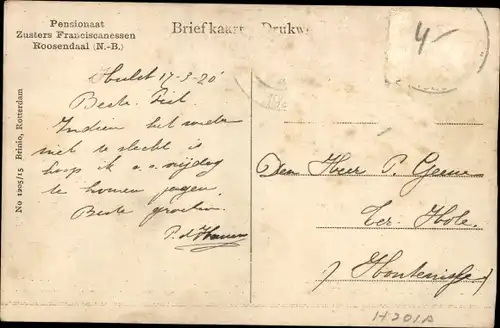 Pensionaat
Zusters Franciscanessen
Roosendaal (N.-B.)
Briefkaart Drukw
4-
Hulst 17-3-20
Beste Piet
Indien het weder
niet te slecht is
hoop ik a.s. vrijdag
te komen jagen.
Beste groeten
P. d'
No 1205/15 Brinio, Rotterdam
Den Heer P.
Ter Hole
Hontenisse
H201A